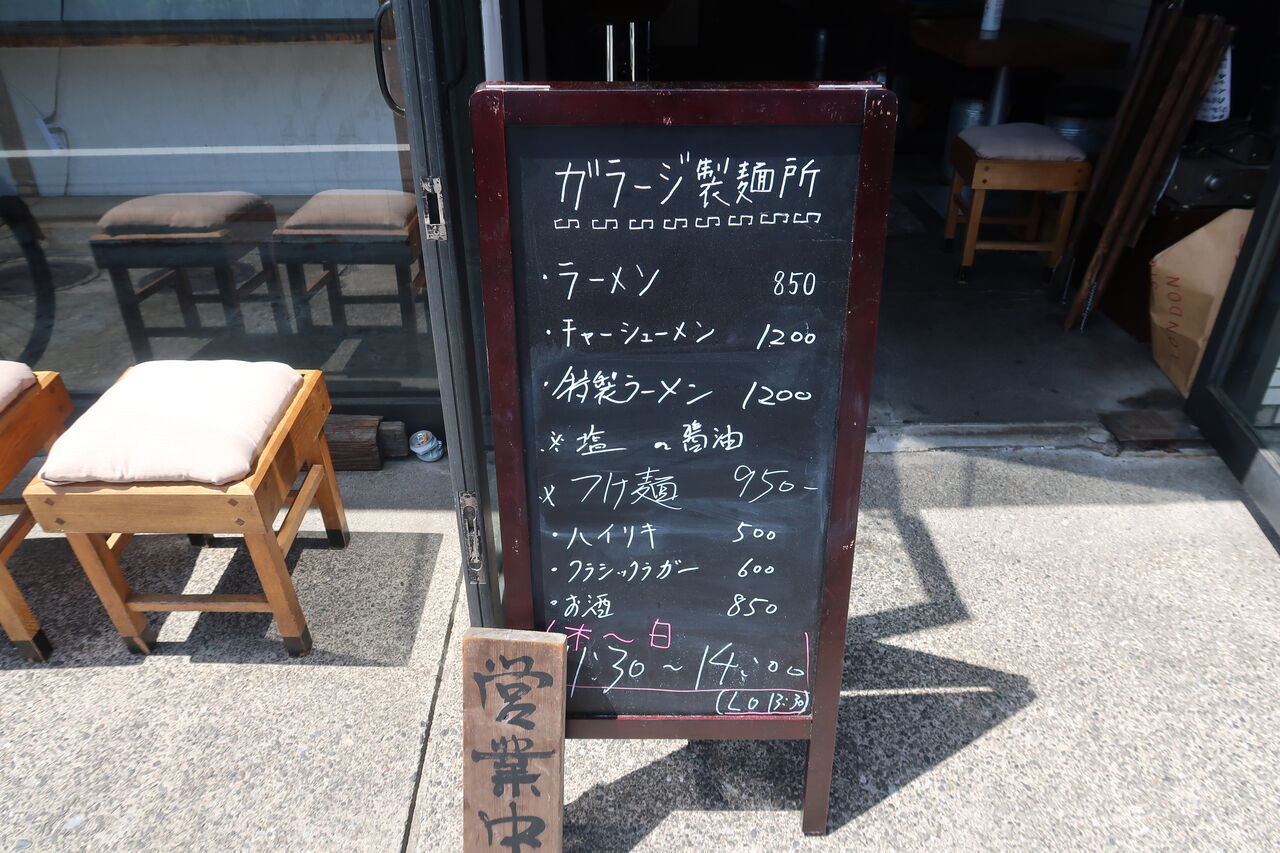 ガラージ製麺所
・ラーメン 850
・チャーシューメン 1200
・特製ラーメン 1200
※塩 or 醤油
× つけ麺 950-
・ハイリキ 500
・クラシックラガー 600
・お酒 850
木～日
11:30～14:00
(LO 13:30)
営業中
LONDON